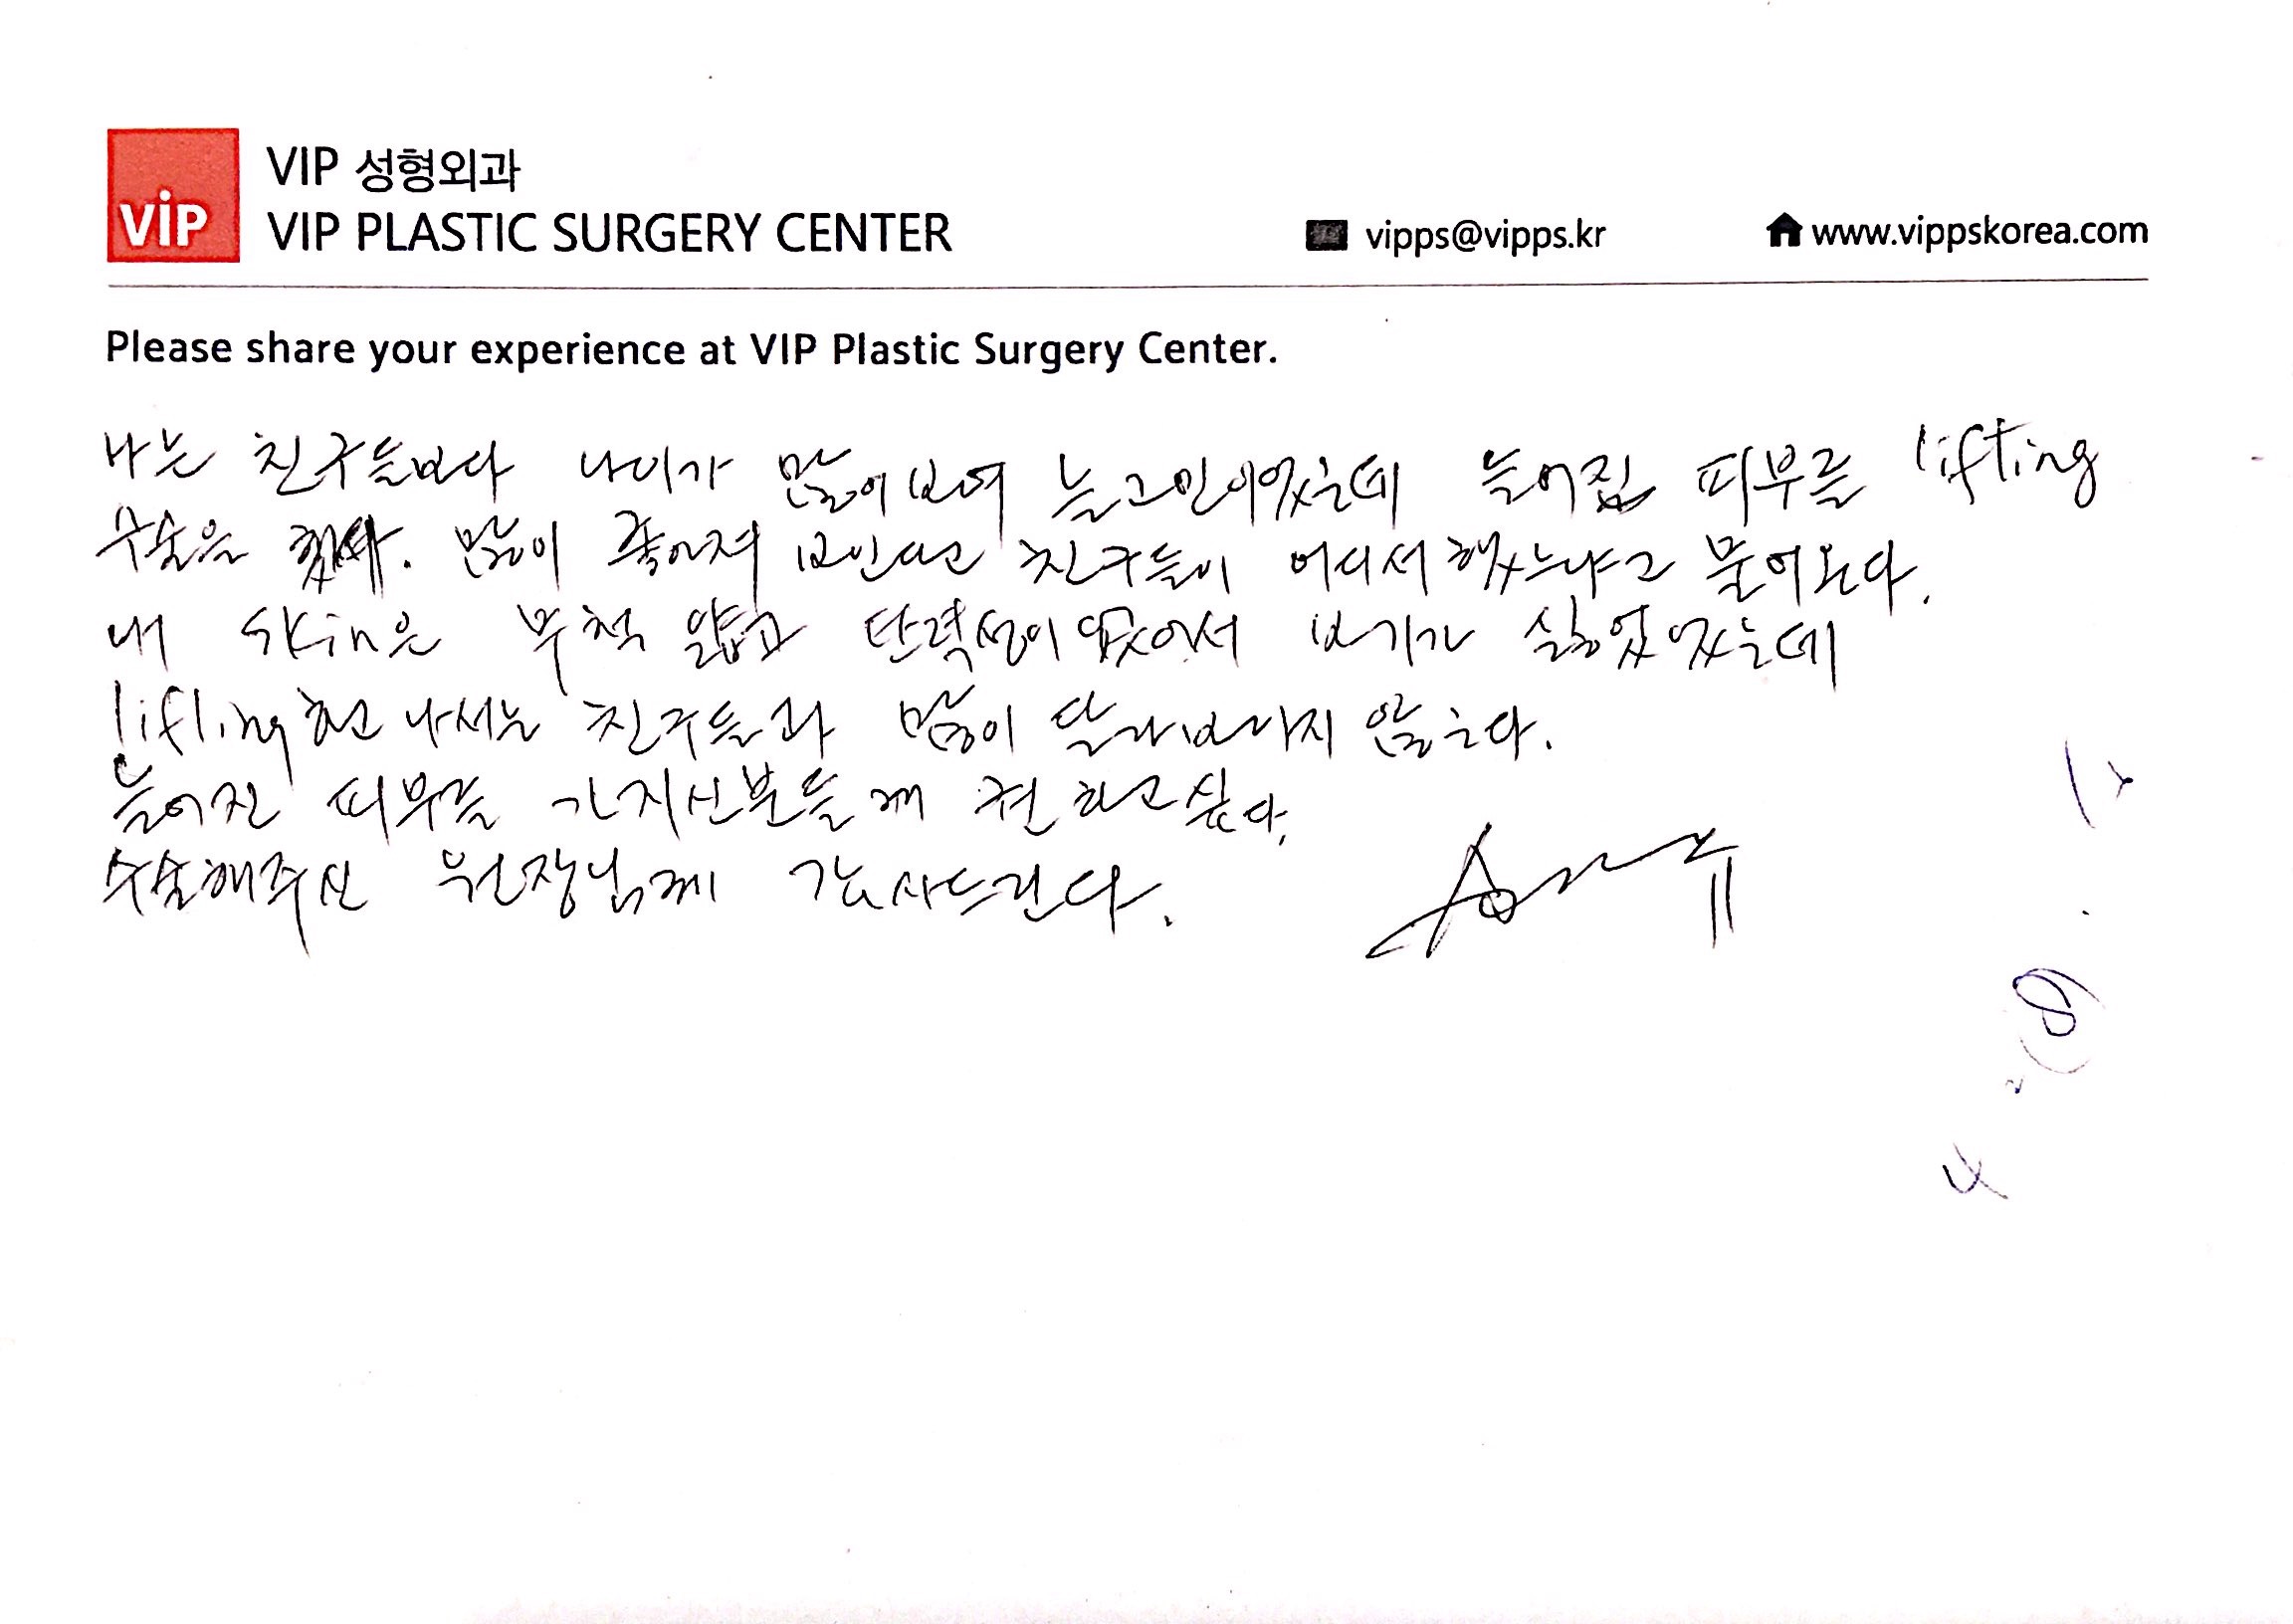 VIP 성형외과
VIP PLASTIC SURGERY CENTER
vipps@vipps.kr
www.vippskorea.com
Please share your experience at VIP Plastic Surgery Center.
나는 친구들보다 나이가 많이 보여 늘 고민이었는데 늘어진 피부를 lifting
수술을 했다. 많이 좋아져 보인다고 친구들이 어디서 했느냐고 물어온다.
내 skin은 무척 얇고 탄력성이 없어서 보기가 싫었었는데
lifting하고 나서는 친구들과 많이 달라보이지 않는다.
늘어진 피부를 가지신분들께 권하고싶다.
수술해주신 원장님께 감사드린다.